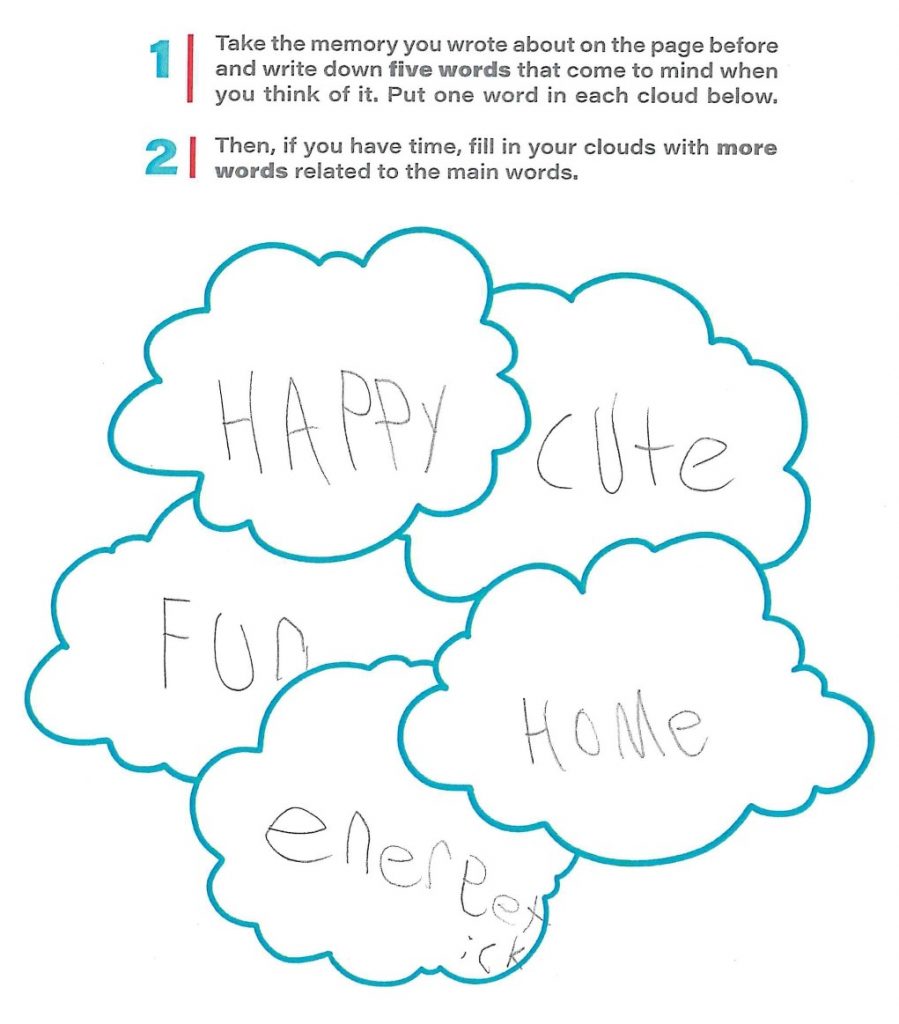 1 Take the memory you wrote about on the page before
and write down five words that come to mind when
you think of it. Put one word in each cloud below.
2 Then, if you have time, fill in your clouds with more
words related to the main words.
HAPPY
CUte
FUn
HoMe
energet
ick